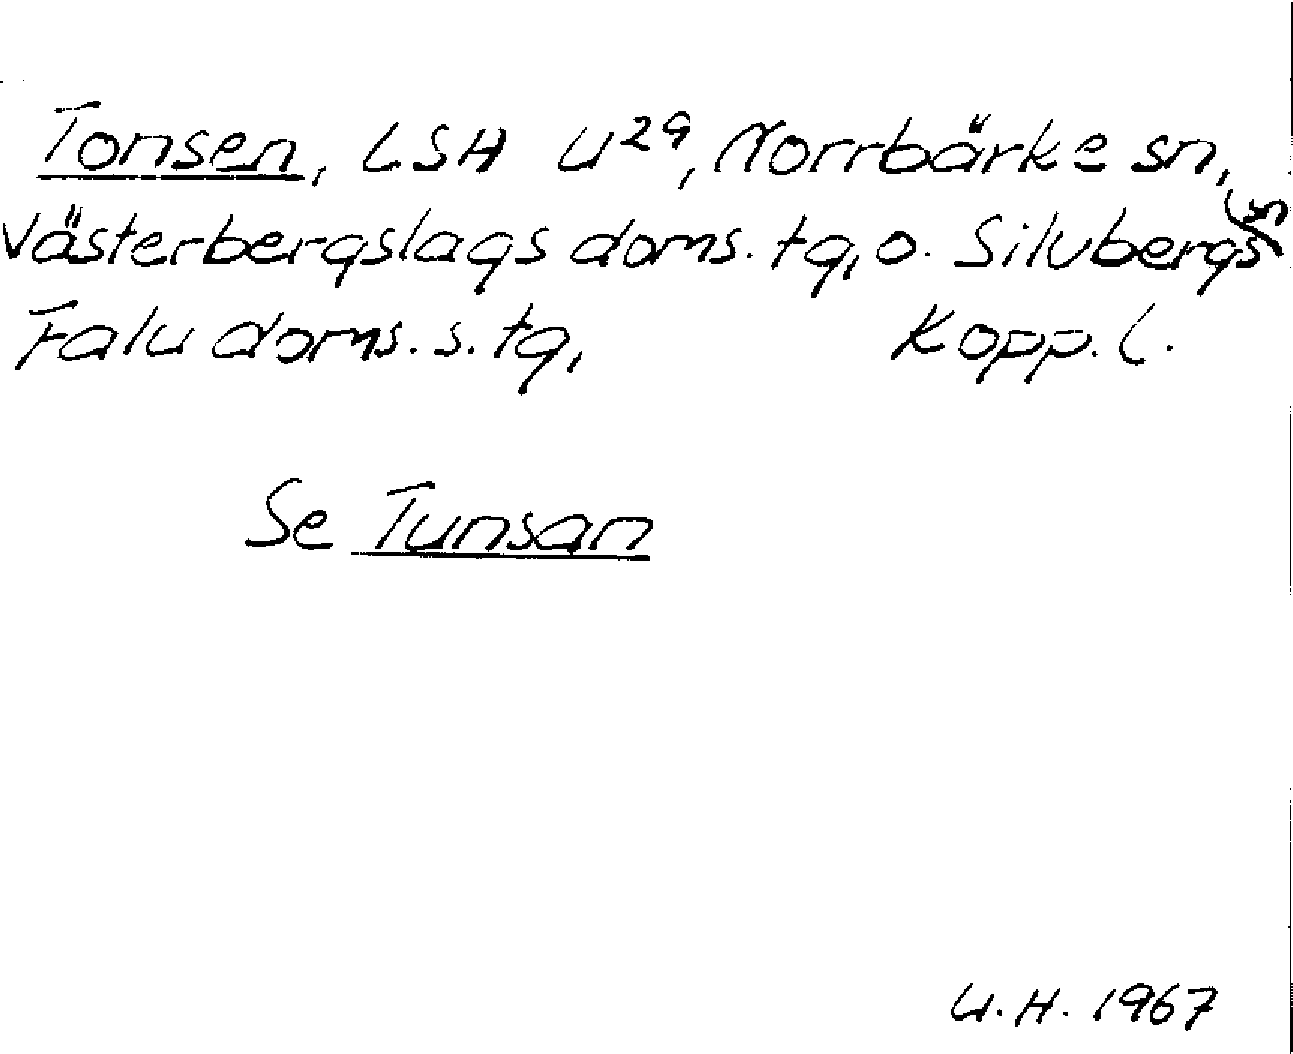 Tonsen, LSH U²⁹, Norrbärke sn,
Västerbergslags doms. tg, o. Silvbergs sn
Falu doms. s. tg, Kopp. l.
Se Tunsan
U.H. 1967